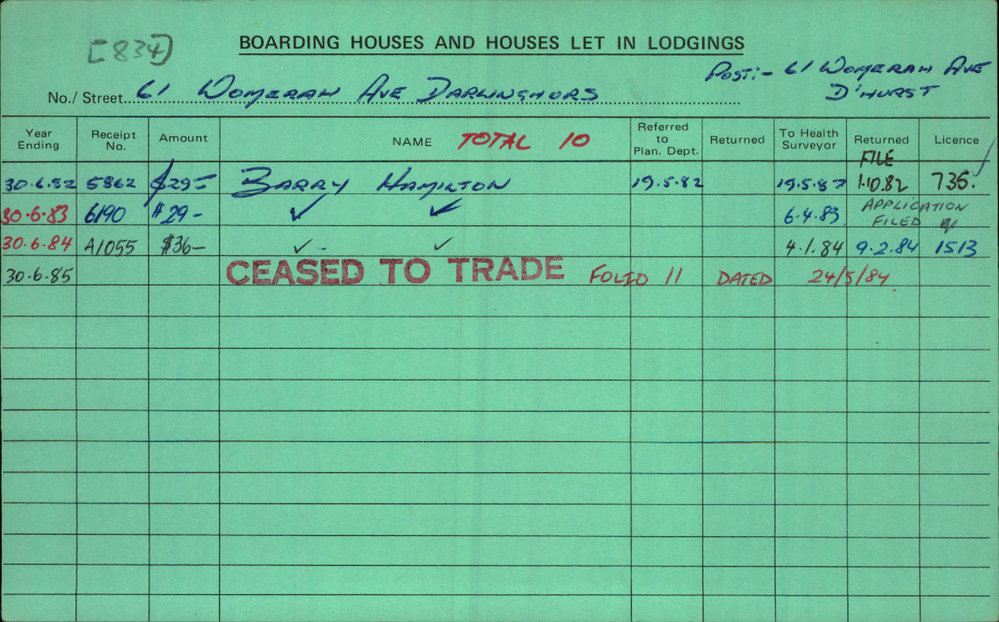 [834]
BOARDING HOUSES AND HOUSES LET IN LODGINGS
Post:- 61 Womerah Ave
D'hurst
No./ Street 61 Womerah Ave Darlinghurs
Year Ending Receipt No. Amount NAME TOTAL 10 Referred to Plan. Dept. Returned To Health Surveyor Returned Licence
FILE
30.6.82 5862 $29- Barry Hamilton 19.5.82 19.5.82 1.10.82 735.
30.6.83 6190 $29- ✓ ✓ 6.4.83 APPLICATION FILED
30.6.84 A1055 $36- ✓ - ✓ 4.1.84 9.2.84 1513
30.6.85 CEASED TO TRADE FOLIO 11 DATED 24/5/84.